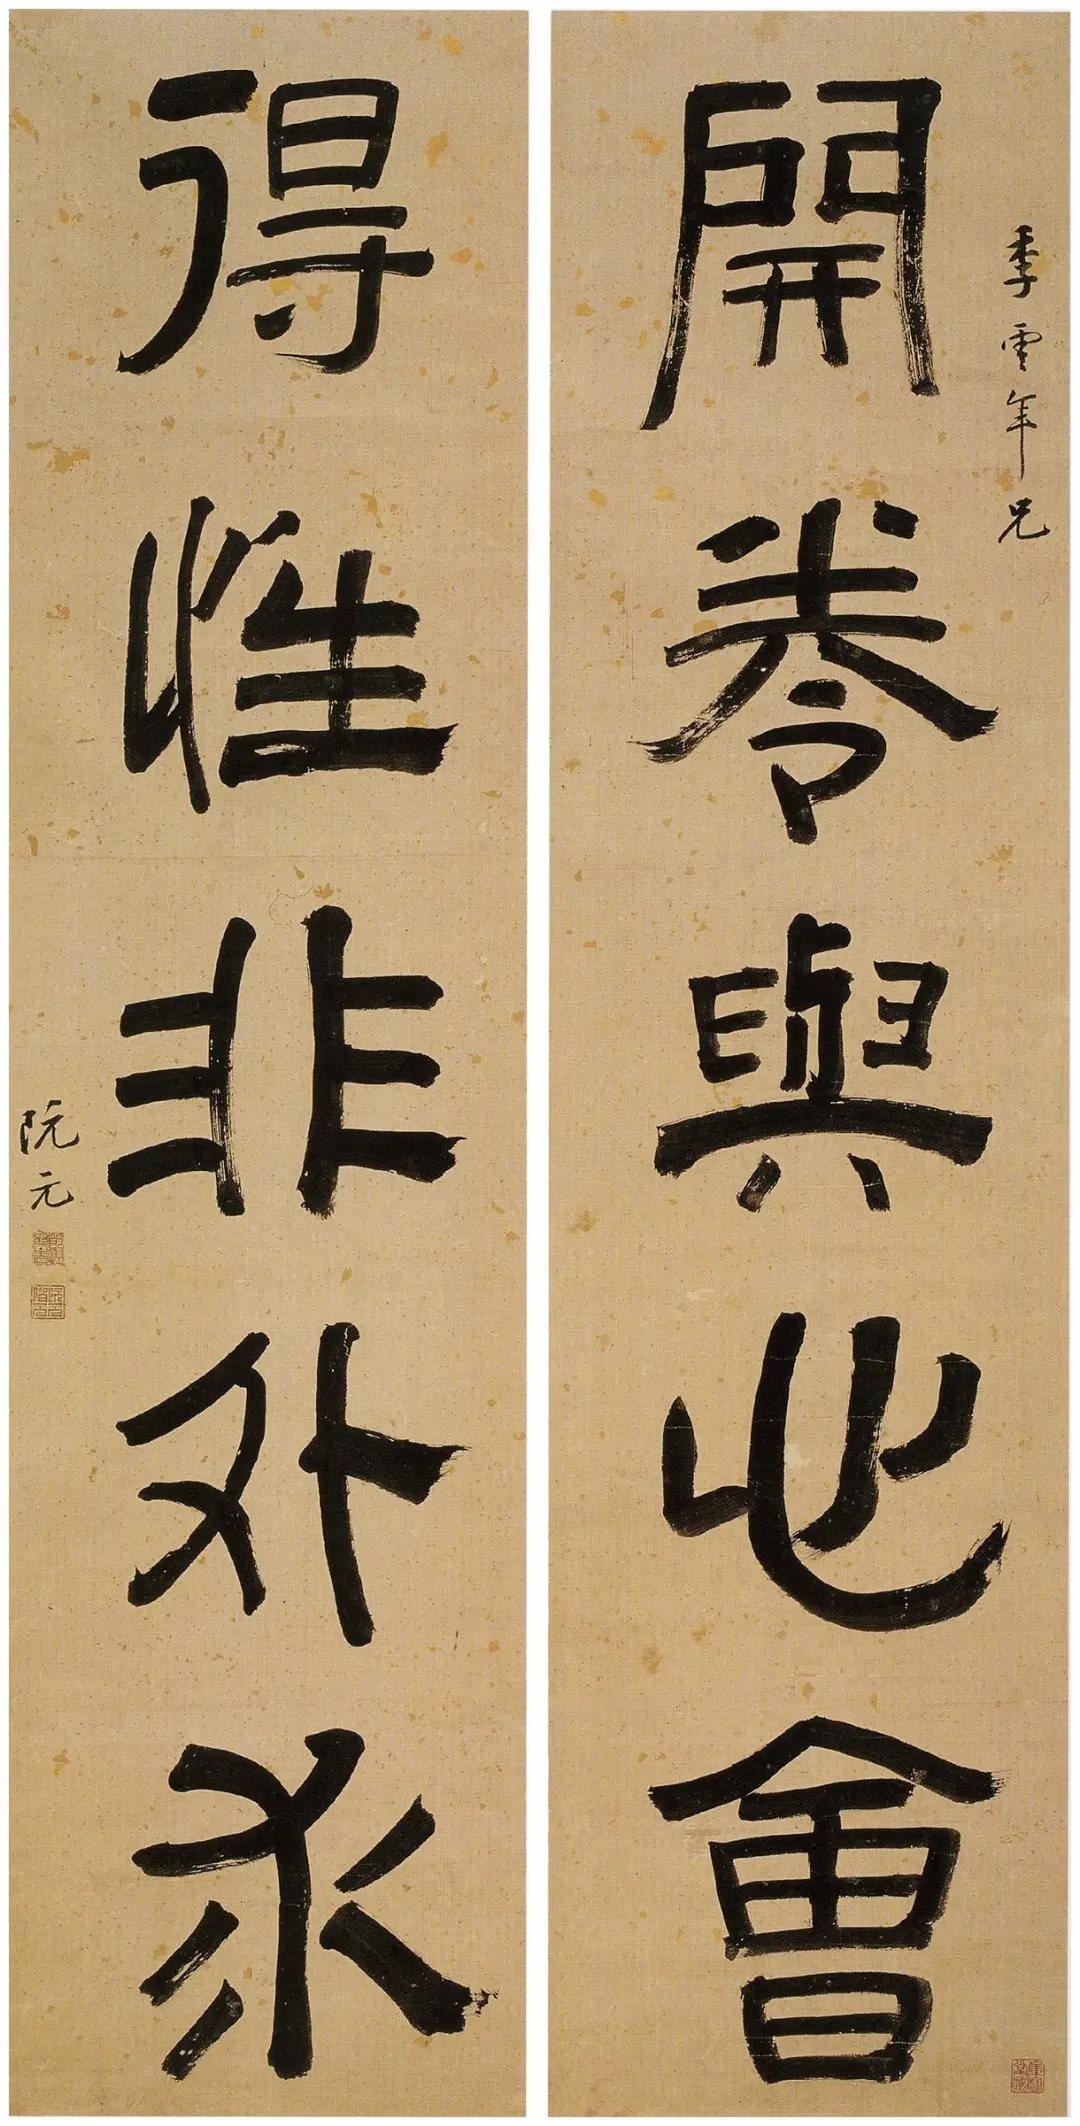 季雲年兄
開卷與心會
得性非外求
阮元